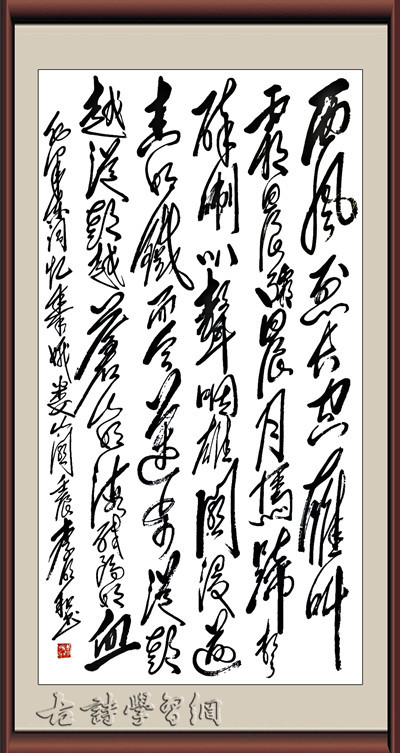 西风烈長空雁叫
霜晨月霜晨月馬蹄聲
碎喇叭聲咽雄関漫道
真如鐵而今邁步從頭
越從頭越蒼山如海残陽如血
毛澤東词忆秦娥娄山関
古詩學習網